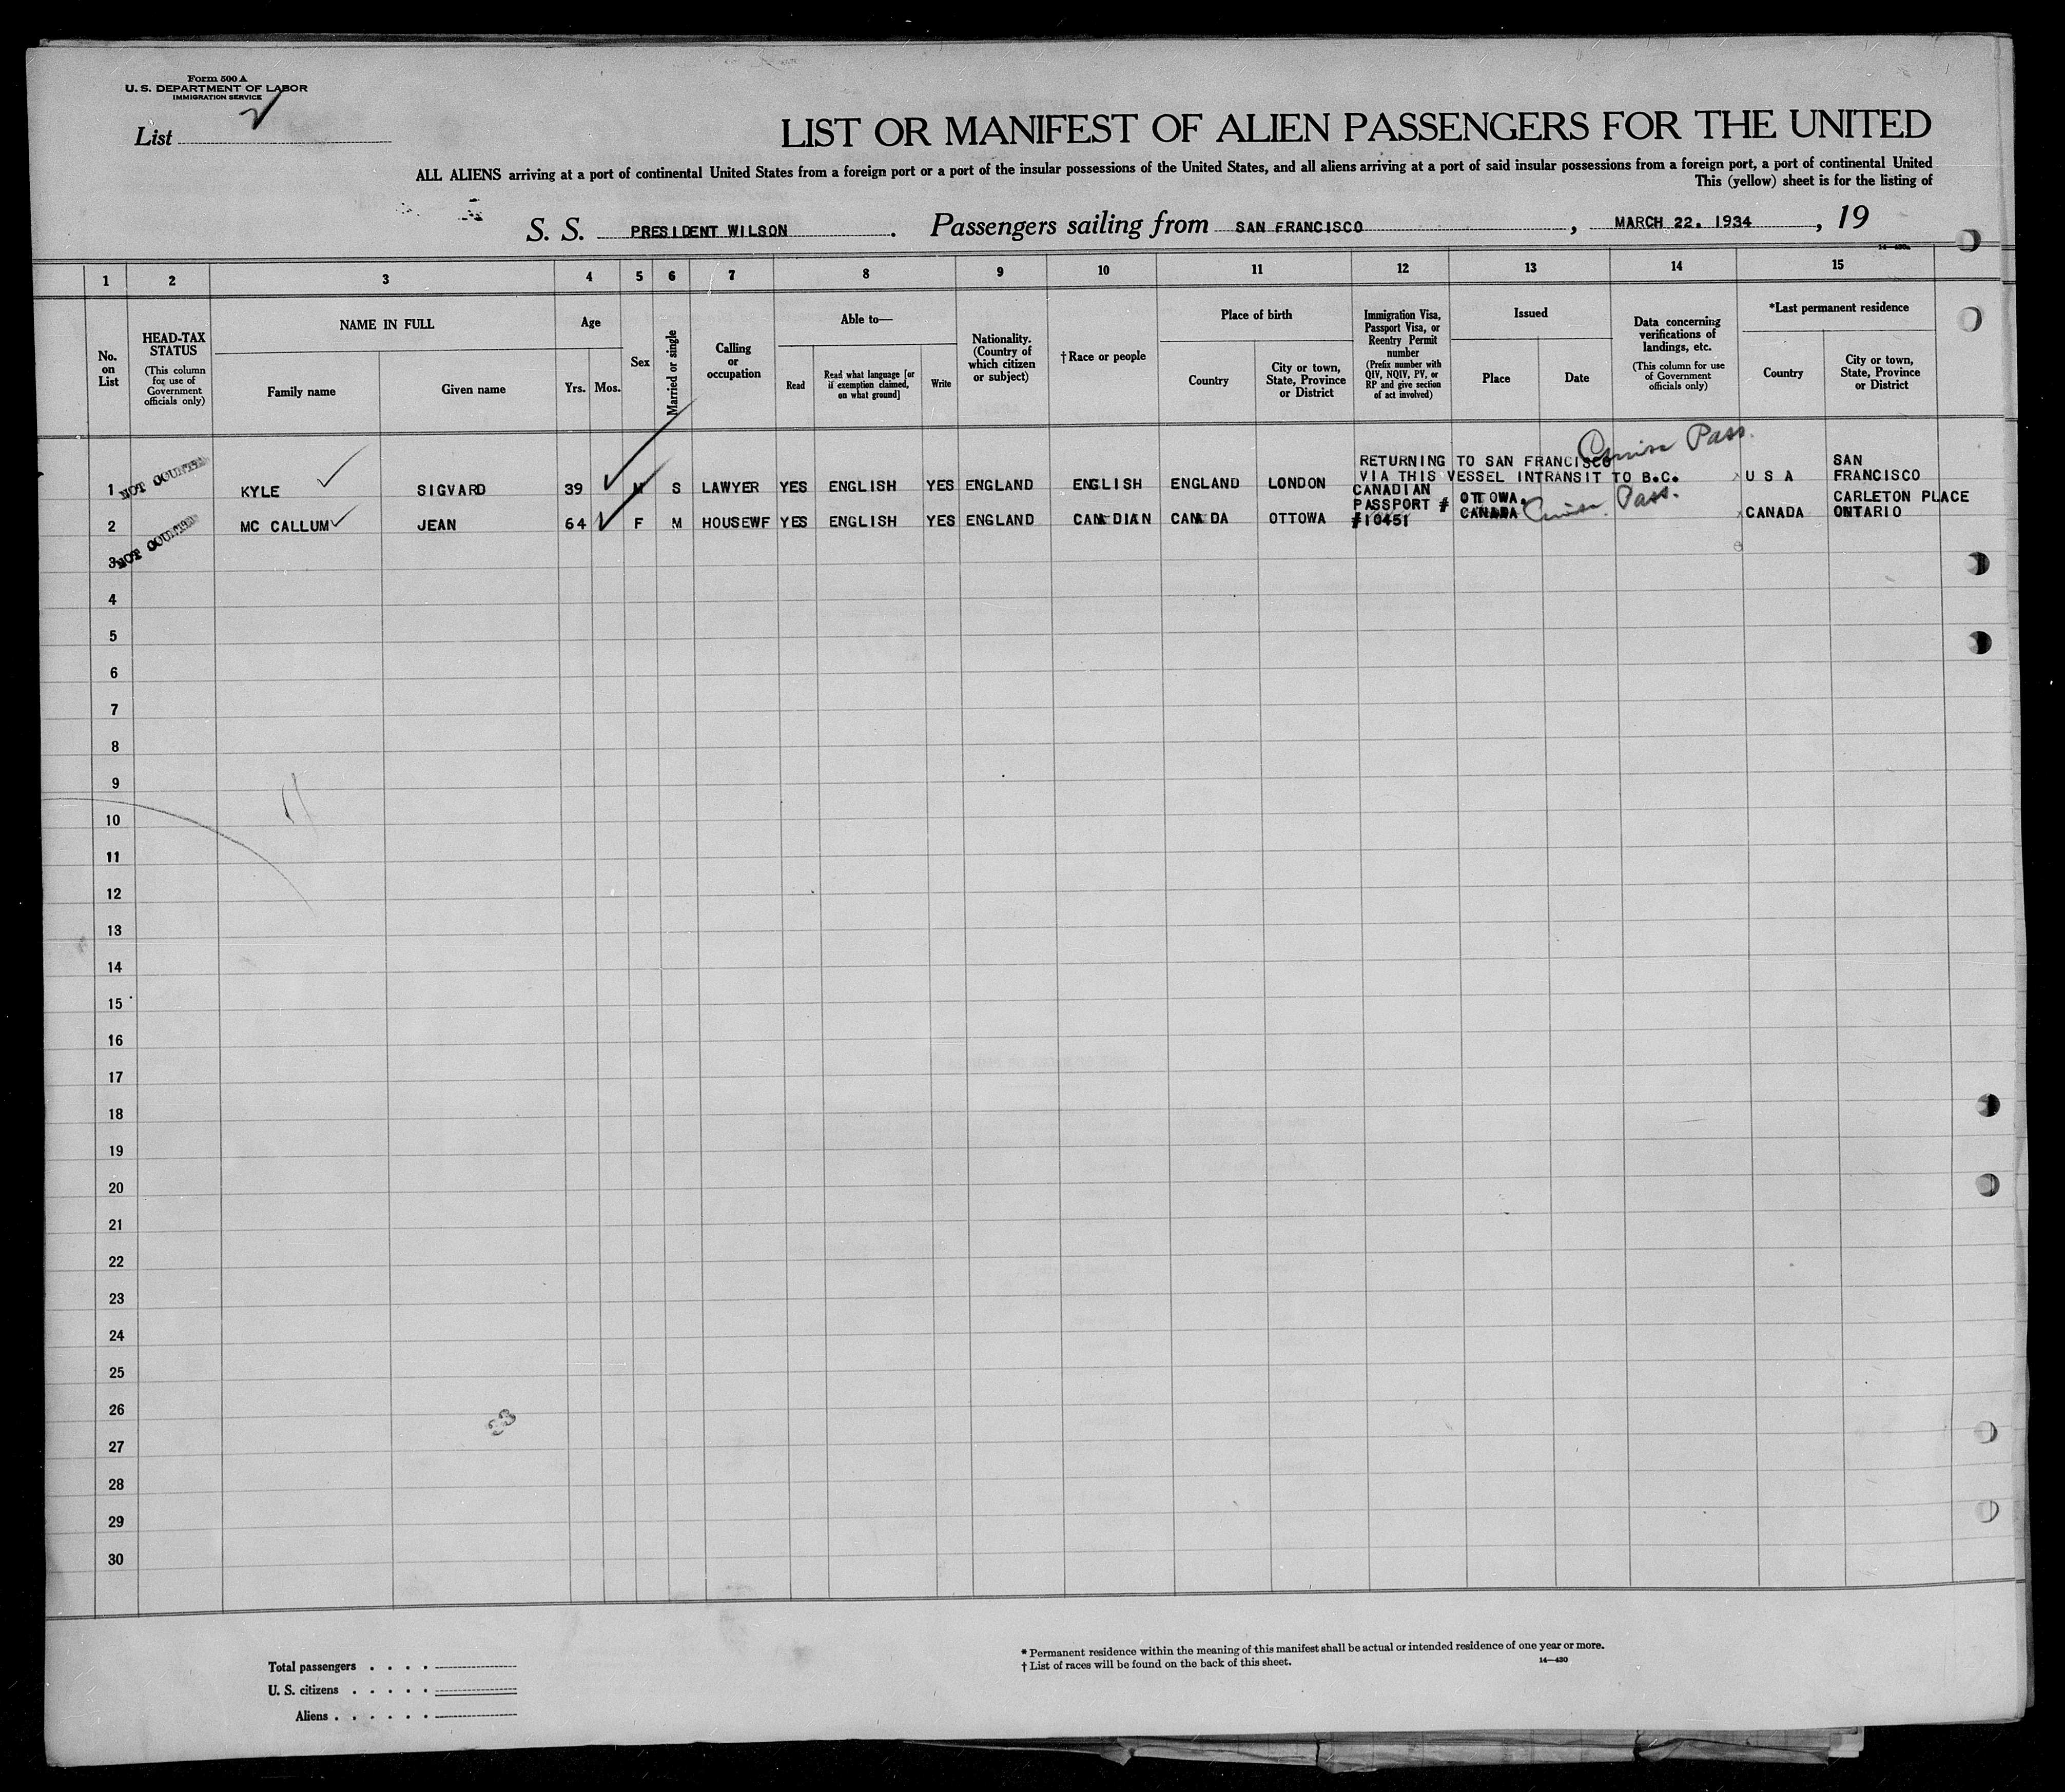 Form 500 A
U. S. DEPARTMENT OF LABOR
IMMIGRATION SERVICE
List
LIST OR MANIFEST OF ALIEN PASSENGERS FOR THE UNITED
ALL ALIENS arriving at a port of continental United States from a foreign port or a port of the insular possessions of the United States, and all aliens arriving at a port of said insular possessions from a foreign port, a port of continental United
This (yellow) sheet is for the listing of
S. S. PRESIDENT WILSON . Passengers sailing from SAN FRANCISCO , MARCH 22. 1934 , 19
1 2 3 4 5 6 7 8 9 10 11 12 13 14 15
No. on List
HEAD-TAX STATUS
(This column for use of Government officials only)
NAME IN FULL
Family name
Given name
Age
Yrs.
Mos.
Sex
Married or single
Calling or occupation
Able to—
Read
Read what language [or if exemption claimed, on what ground]
Write
Nationality. (Country of which citizen or subject)
†Race or people
Place of birth
Country
City or town, State, Province or District
Immigration Visa, Passport Visa, or Reentry Permit number
(Prefix number with QIV, NQIV, PV, or RP and give section of act involved)
Issued
Place
Date
Data concerning verifications of landings, etc.
(This column for use of Government officials only)
*Last permanent residence
Country
City or town, State, Province or District
Cruise Pass.
1 NOT COUNTED KYLE SIGVARD 39 M S LAWYER YES ENGLISH YES ENGLAND ENGLISH ENGLAND LONDON RETURNING TO SAN FRANCISCO VIA THIS VESSEL INTRANSIT TO B.C. U S A SAN FRANCISCO
2 NOT COUNTED MC CALLUM JEAN 64 F M HOUSEWF YES ENGLISH YES ENGLAND CANADIAN CANADA OTTOWA CANADIAN PASSPORT # #10451 OTTOWA, CANADA Cruise Pass. CANADA CARLETON PLACE ONTARIO
3
4
5
6
7
8
9
10
11
12
13
14
15
16
17
18
19
20
21
22
23
24
25
26
27
28
29
30
23
Total passengers . . . .
U. S. citizens . . . . .
Aliens . . . . . .
* Permanent residence within the meaning of this manifest shall be actual or intended residence of one year or more.
† List of races will be found on the back of this sheet.
14—430